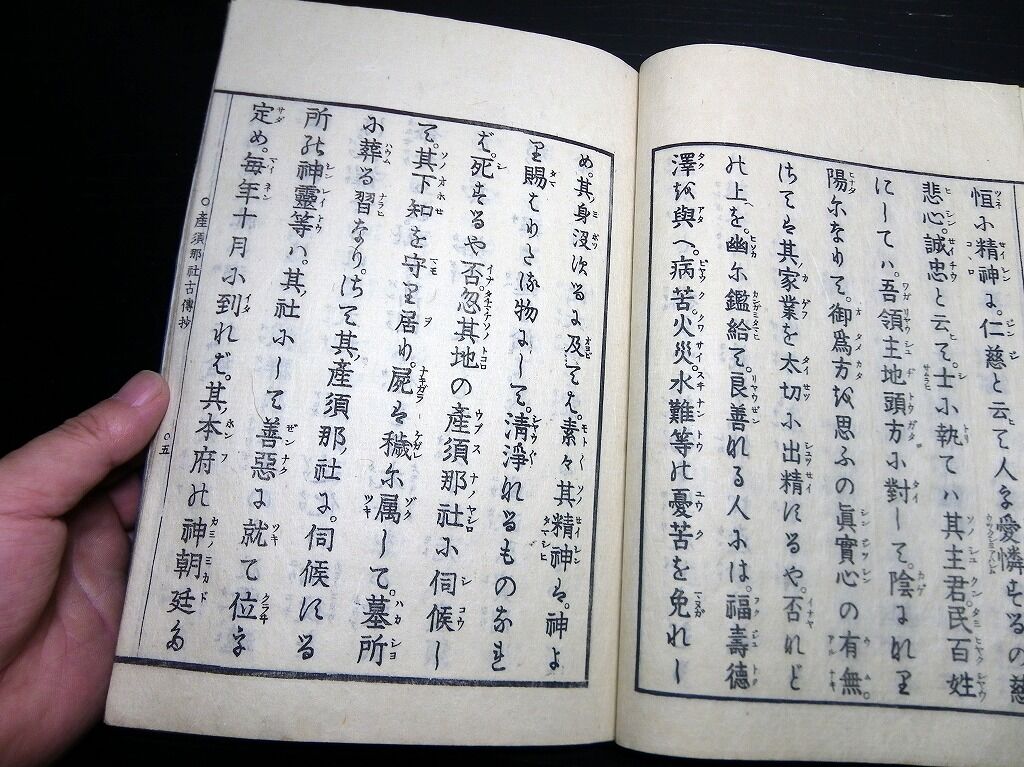 恒に精神に。仁慈と云て人を愛憐するの慈
悲心。誠忠と云て。士に執てハ其主君。民百姓
にしてハ。吾領主地頭方に對して。陰になれり
陽になりて。御爲方を思ふの眞實心の有無。
はては其家業を太切に出精にするや。否れど
の上を。幽に鑑給て。良善れる人には。福壽德
澤を與へ。病苦。火災。水難等の憂苦を免れし
め。其身没するに及ては。素々其精神は。神よ
り賜はりたる物にして。清淨れるものなれ
ば。死するや否。忽其地の產須那社に伺候し
て。其下知を守り居り。屍は穢に属して。墓所
に葬る習なり。はて其產須那社に。伺候にする
所の神靈等ハ。其社にして善惡に就て位を
定め。每年十月に到れば。其本府の神朝廷に
○產須那社古傳抄
○五